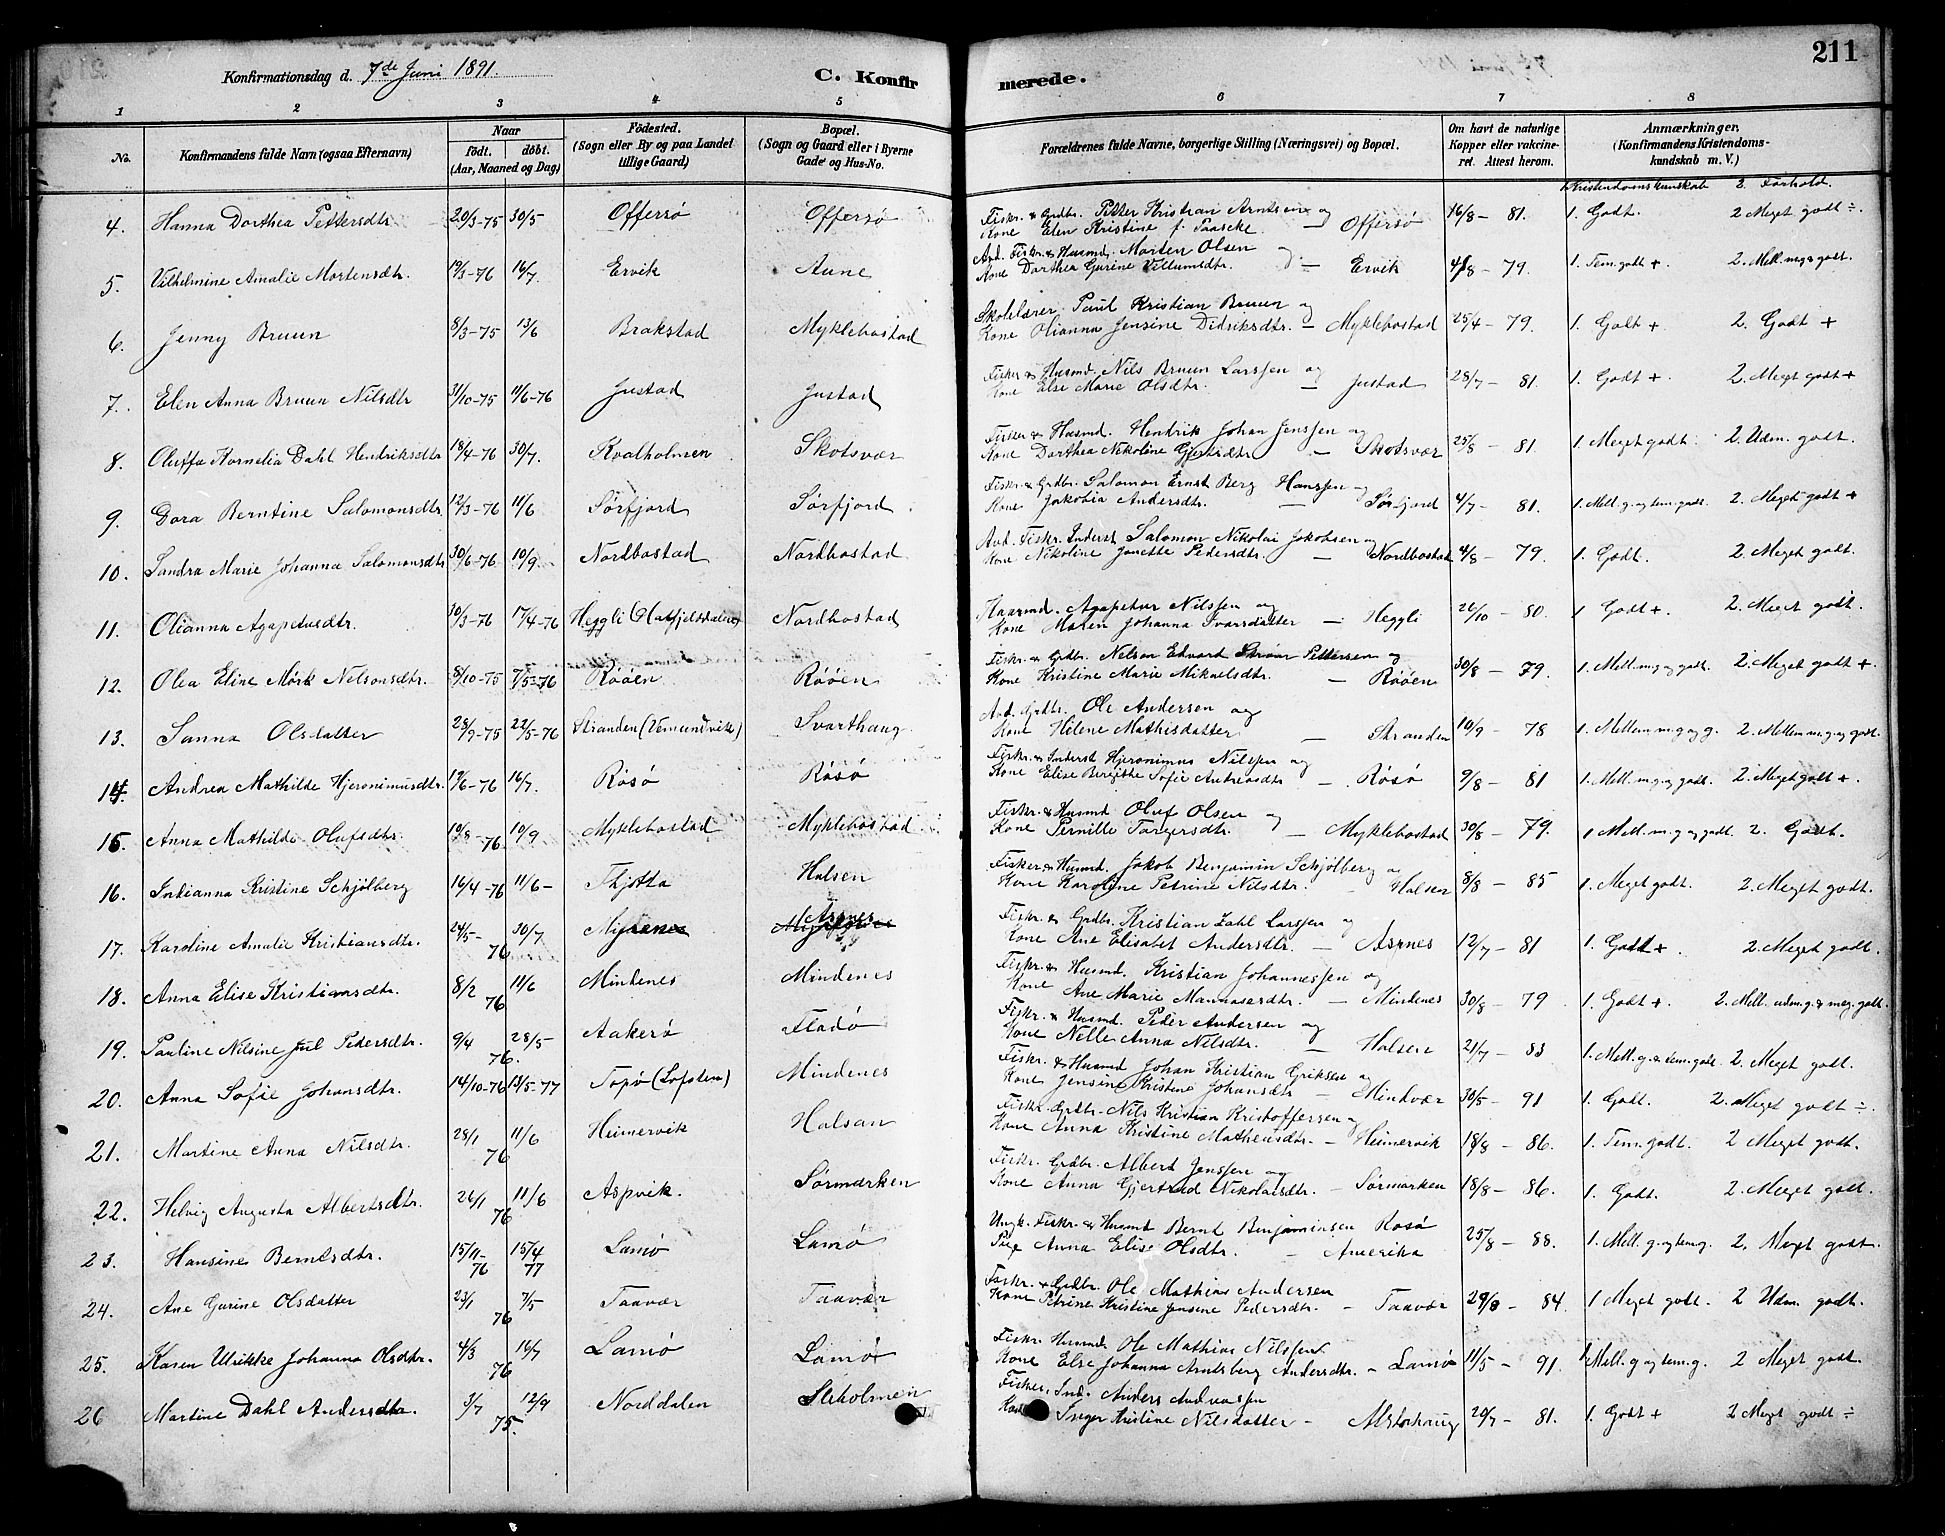 211
Konfirmationsdag d. 7de Juni 1891. C. Konfirmerede.
1 2 3 4 5 6 7 8
No. Konfirmandens fulde Navn (ogsaa Efternavn) Naar födt. döbt. (Aar, Maaned og Dag) Födested. (Sogn eller By og paa Landet tillige Gaard) Bopæl. (Sogn og Gaard eller i Byerne Gade og Hus-No. Forældrenes fulde Navne, borgerlige Stilling (Næringsvei) og Bopæl. Om havt de naturlige Kopper eller vakcineret. Attest herom. Anmærkninger. (Konfirmandens Kristendomskundskab m. V.)
Kristendomskunskab 2. Forhold.
4. Hanna Dorthea Pettersdtr. 20/3-75 30/5 Offersø Offersø Fiskr. & Grdbr. Petter Kristian Arntsen og Kone Elen Kristine f. Paascke — Offersø 16/8 - 81. 1. Godt. 2 Meget godt ÷.
5. Vilhelmine Amalie Mortensdtr. 19/3-76 16/7. Ervik Aune Avd. Fiskr. & Husmd. Morten Olsen og Kone Dorthea Gurine Villumsdtr. — Ervik 4/8 - 79. 1. Tem. godt + 2. Mell. meg. & godt.
6. Jenny Bruun 8/3-75 13/6 Brakstad Myklebostad Skolelærer Paul Kristian Bruun og Kone Olianna Jensine Didriksdtr. — Myklebostad 25/4 - 79. 1. Godt + 2. Godt +
7. Elen Anna Bruun Nilsdtr 31/10-75 11/6-76 Justad Justad Fisker & Husmd. Nils Bruun Larssen og Kone Else Marie Olsdtr. — Justad 28/7 - 81. 1. Godt + 2. Meget godt +
8. Oluffa Kornelia Dahl Hendriksdtr 18/4-76 30/7. Kvalholmen Skotsvær Fisker & Husmd. Hendrik Johan Jenssen og Kone Dorthea Nikoline Gjertsdtr — Skotsvær 25/8 - 81 1. Meget godt. 2. Udm. godt.
9. Dora Berntine Salomonsdtr. 12/3-76 11/6 Sørfjord Sørfjord Fiskr. & Grdbr. Salomon Ernst Berg Hanssen og Kone Jakobia Andersdtr. — Sørfjord 4/7 - 81. 1. Mell. g. og tem. godt. 2. Meget godt +
10. Sandra Marie Johanna Salomonsdtr 30/6-76 10/9. Nordbostad Nordbostad Avd. Fiskr. Inderst Salomon Nikolai Jakobsen og Kone Nikoline Janette Pedersdtr. — Nordbostad 4/8 - 79. 1. Godt. 2. Meget godt.
11. Olianna Agapetusdtr. 30/3-76 17/4-76 Heggli (Hatfjelddalen) Nordbostad Husmd. Agapetus Nilssen og Kone Maren Johanna Ivarsdatter — Heggli 22/10 - 80. 1 Godt +. 2. Meget godt.
12. Olea Eline Mørk Nelsonsdtr. 8/10-75 7/5-76 Røøen Røøen Fiskr. & Grdbr. Nelson Edvard Pettersen og Kone Kristine Marie Mikaelsdtr. — Røøen 30/8 - 79. 1. Mell. m. g. og godt. 2. Meget godt +.
13. Sanna Olsdatter 28/9-75 22/5-76 Stranden (Vemundvik) Svarthaug Avd. Grdbr. Ole Andersen og Kone Helene Mathisdatter — Stranden 10/9 - 78 1. Mellem m. g. og g. 2. Mellem m. g. og godt.
14. Andrea Mathilde Hjeronimusdtr. 19/6-76 16/7. Røsø Røsø Fiskr. & Inderst Hjeronimus Nilssen og Kone Elise Beregthe Sofie Andreasdtr — Røsø 9/8 - 81 1. Mell. m. g. og godt. 2. Meget godt +.
15. Anna Mathilde Olufsdtr. 10/8-76 10/9 Myklebostad Myklebostad Fiskr. & Husmd Oluf Olsen og Kone Pernille Torgersdtr. — Myklebostad 30/8 - 79. 1 Mell. m. g. og godt. 2. Godt.
16. Indianna Kristine Schjølberg 16/4-76 11/6- Thjøtta Halsen Fisker & Husmd. Jakob Benjamin Schjølberg og Kone Karoline Petrine Nilsdtr. — Halsen 8/8 - 85 1. Meget godt. 2. Meget godt.
17. Karoline Amalie Kristiansdtr. 24/5-76 30/7 Asnes Fiskr. & Grdbr. Kristian Zahl Larssen og Kone Ane Elisabet Andersdtr. — Asnes 12/7 - 81 1. Godt + 2. Meget godt.
18. Anna Elise Kristiansdtr. 8/2 76 11/6 Mindenes Mindenes Fiskr. & Husmd. Kristian Johannessen og Kone Ane Marie Mannasesdtr. — Mindenes 30/8 - 79 1. Godt +. 2. Mell. udm. g. & meg. godt.
19. Pauline Nilsine Juul Pedersdtr. 9/4 76. 28/5 Aakerø Fladø Fiskr. & Husmd. Peder Andersen og Kone Nelle Anna Nilsdtr. — Halsen 21/7 - 83 1. Mell. g. & tem. godt. 2. Meget godt.
20. Anna Sofie Johansdtr. 14/10-76 13/5-77 Topø (Lofoten) Mindenes Fiskr. & Husmd Johan Kristian Eriksen og Kone Jensine Kristine Johansdtr — Mindvær 30/5 - 91 1. Godt. 2. Meget godt ÷.
21. Martine Anna Nilsdtr. 28/1 76 11/6 Heimervik Halsan Fiskr. Grdbr. Nils Kristian Kristoffersen og Kone Anna Kristine Matheusdtr. — Heimervik 18/8 - 86. 1. Tem. godt. 2 Meget godt.
22. Helvig Augusta Albertsdtr. 26/1 76 11/6 Aspvik. Sørmarken Fiskr. Grdbr. Albert Jenssen og Kone Anna Gjertrud Nikolaisdtr. — Sørmarken 18/8 - 86. 1. Godt. 2. Meget godt.
23. Hansine Berntsdtr. 15/11-76 15/4 77 Lamø Lamø Ungk. Fiskr. & Husmd Bernt Benjaminsen Rosø Pige Anna Elise Olsdtr. — Amerika 25/8 - 88. 1. Mell. g. og tem. g. 2. Meget godt.
24. Ane Gurine Olsdatter 23/1 76 7/5 Taavær Taavær Fiskr. & Grdbr. Ole Mathias Andersen Kone Petrine Kristine Jensine Pedersdtr. — Taavær 29/8 - 84. 1 Meget godt. 2 Udm. godt.
25. Karen Ulrikke Johanna Olsdtr. 4/3 76 16/7 Lamø Lamø Fiskr. Husmd Ole Mathias Nilssen. Kone Else Johanna Arntsberg Andersdtr. — Lamø 11/5 - 91. 1 Mell. g og tem. g. 2 Meget godt.
26 Martine Dahl Andersdtr. 3/7 75. 12/9 Norddalen Fisker. Ind. Anders Andreassen Inger Kristine Nilsdatter — Alstenhaug 20/7 - 81. 1. Godt + 2 Meget godt ÷